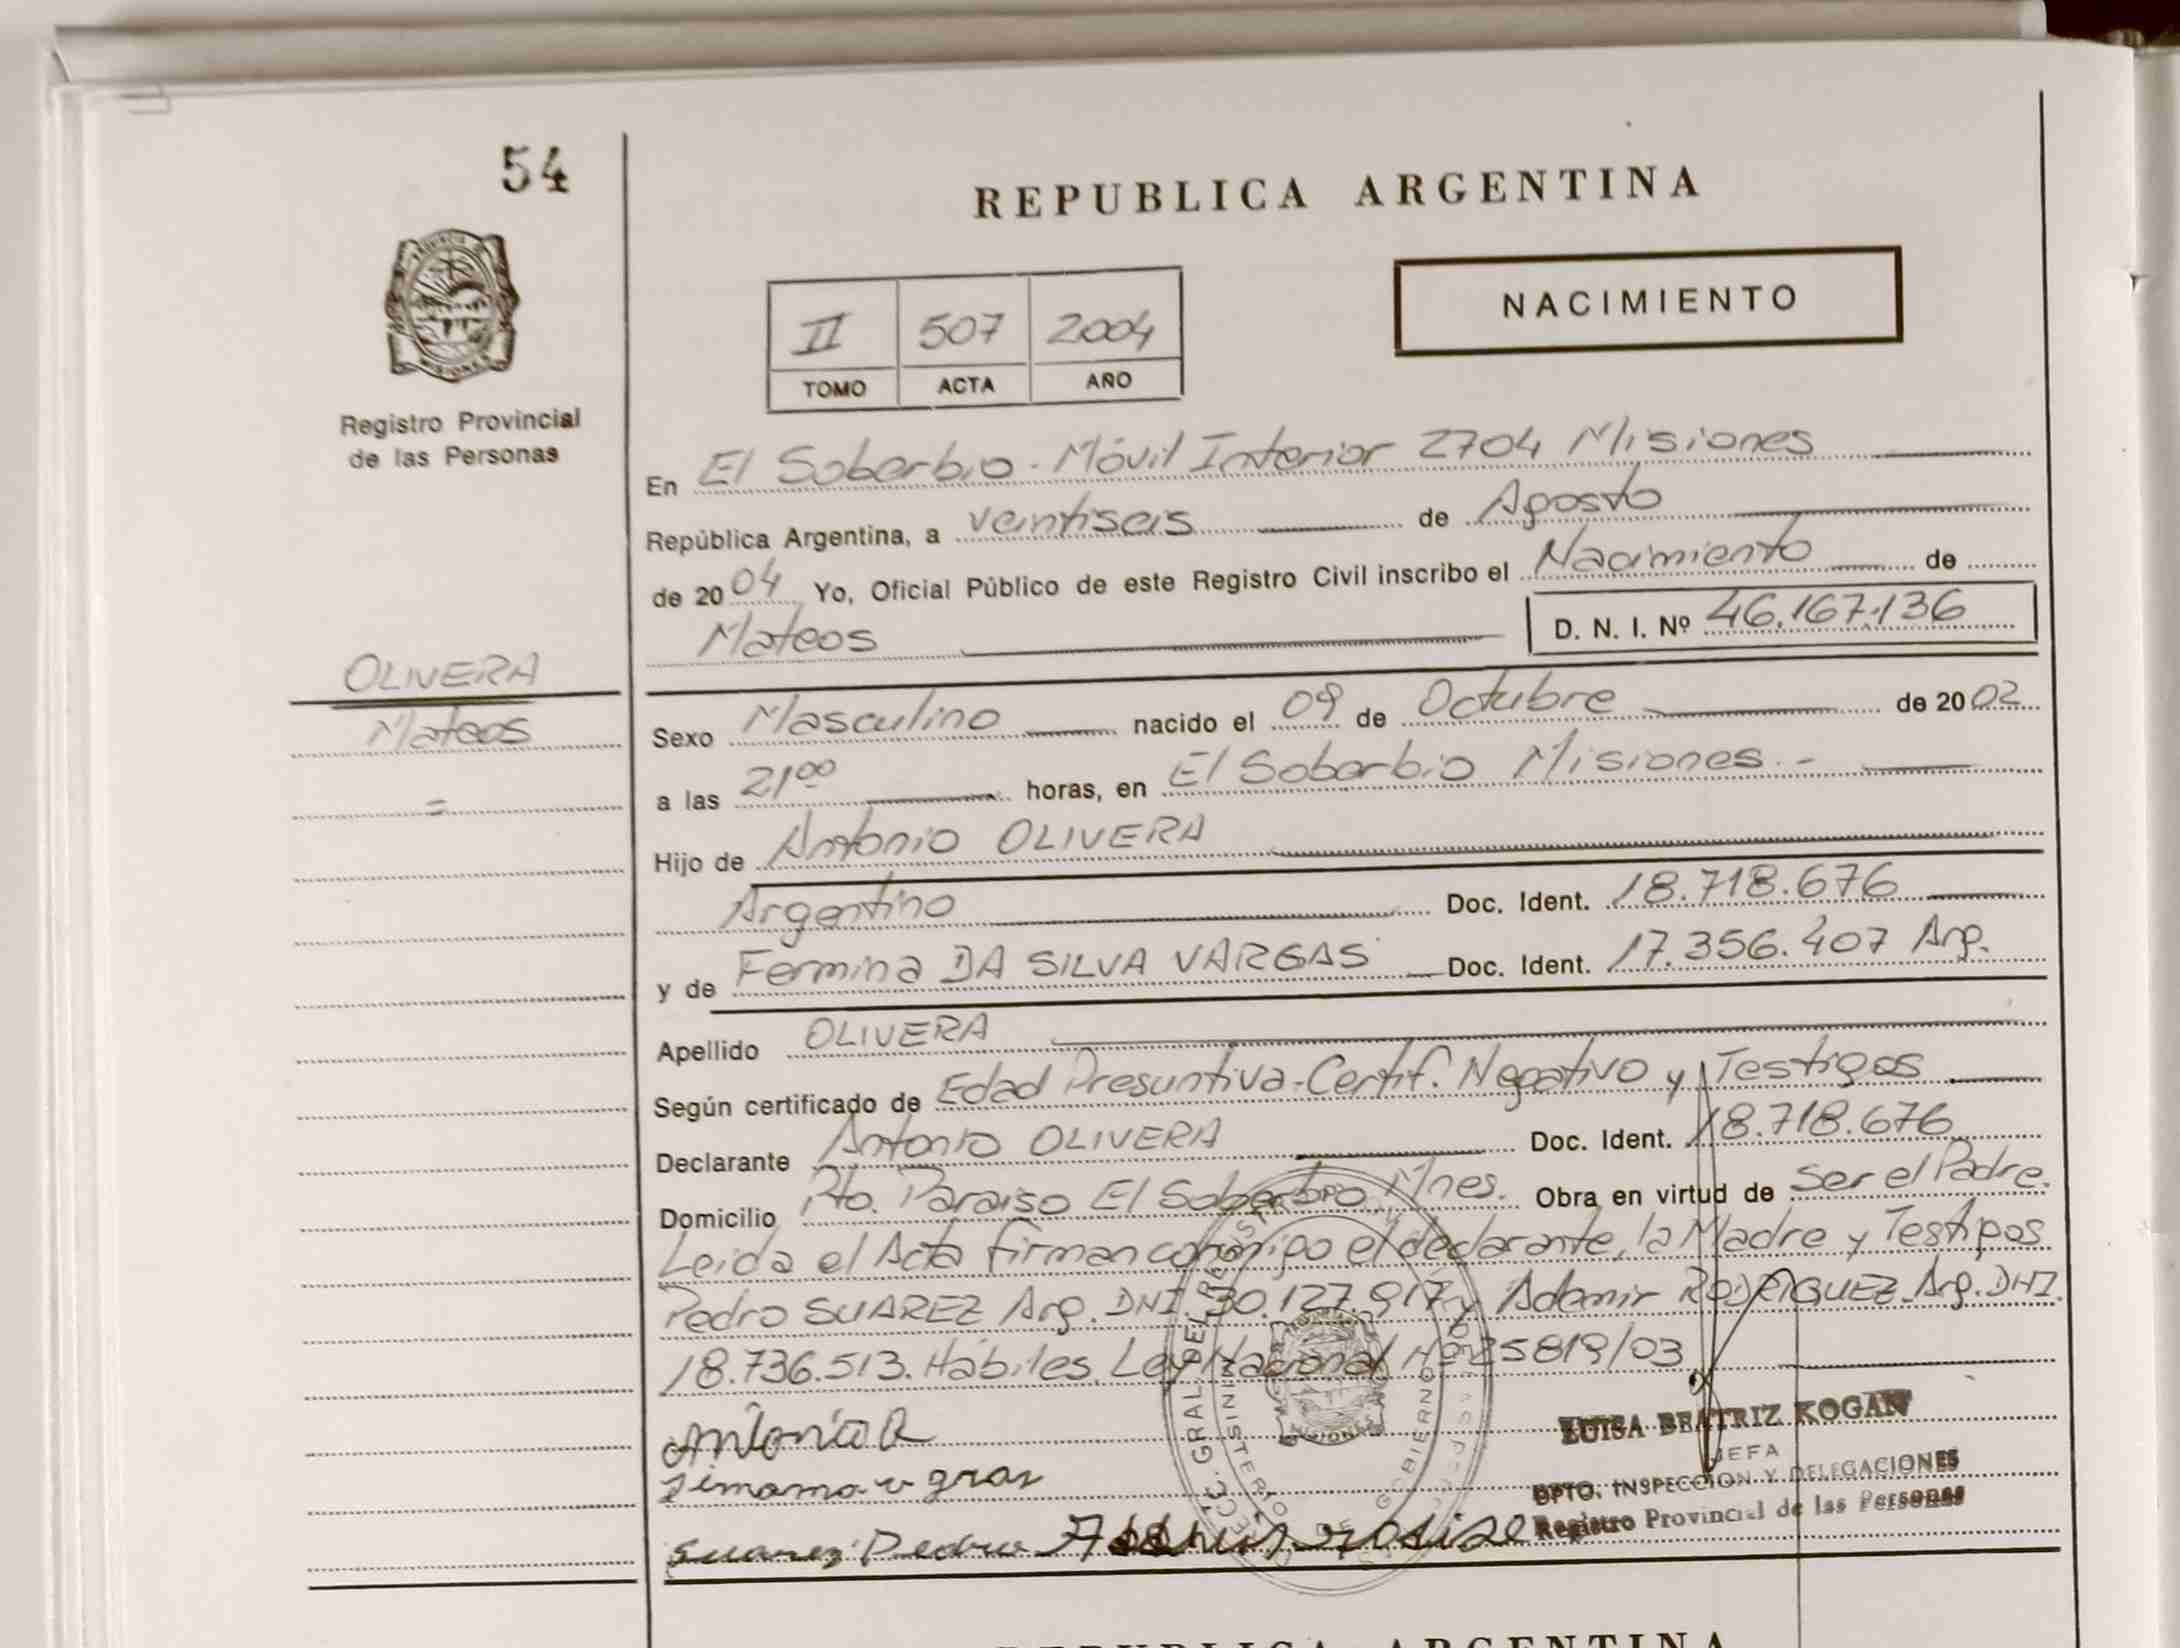 54
REPUBLICA ARGENTINA
NACIMIENTO
II 507 2004
TOMO ACTA AÑO
Registro Provincial
de las Personas
En El Soberbio - Móvil Interior 2704 Misiones
República Argentina, a veintiseis de Agosto
de 2004 Yo, Oficial Público de este Registro Civil inscribo el Nacimiento de
Mateos D. N. I. Nº 46.167.136
OLIVERA
Mateos
=
Sexo Masculino nacido el 09 de Octubre de 2002
a las 21⁰⁰ horas, en El Soberbio Misiones.-
Hijo de Antonio OLIVERA
Argentino Doc. Ident. 18.718.676
y de Fermina DA SILVA VARGAS Doc. Ident. 17.356.407 Arg.
Apellido OLIVERA
Según certificado de Edad Presuntiva-Certif. Negativo y Testigos
Declarante Antonio OLIVERA Doc. Ident. 18.718.676
Domicilio Pto. Paraiso El Soberbio, Mnes. Obra en virtud de Ser el Padre.
Leida el Acta firman conmigo el declarante, la Madre y Testigos
Pedro SUAREZ Arg. DNI. 30.127.917 y Ademir RODRIGUEZ Arg. DNI.
18.736.513. Hábiles. Ley Nacional Nº 25819/03
Antonio
suarez Pedro
LUISA BEATRIZ KOGAN
JEFA
DPTO. INSPECCION Y DELEGACIONES
Registro Provincial de las Personas
MINISTERIO DE GOBIERNO
MISIONES
REPUBLICA ARGENTINA